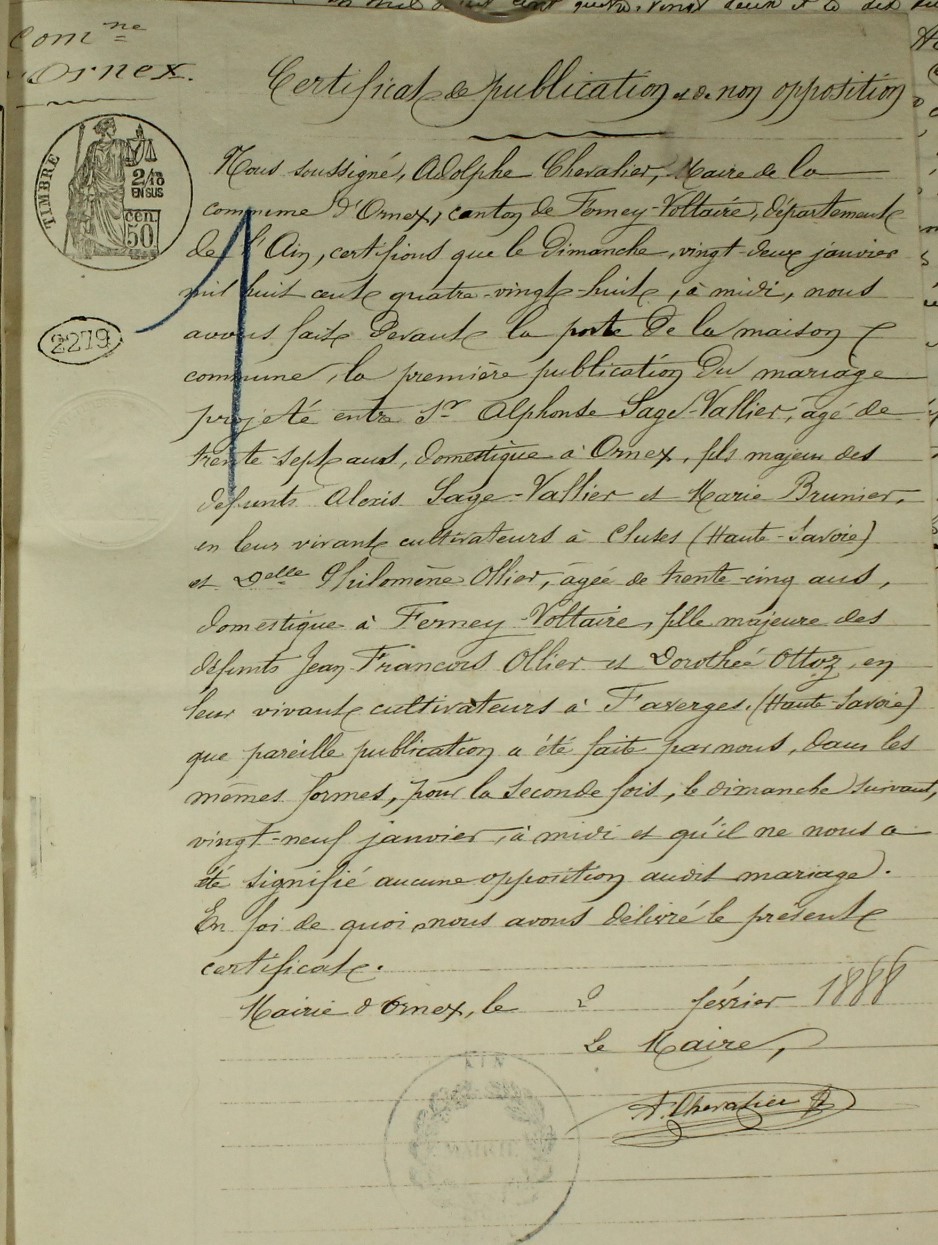 Com.ne
Ornex.
Certificat de publication et de non opposition
TIMBRE
2/10
EN SUS
cen.
50
2279
Nous soussigné, Adolphe Chevalier, Maire de la
commune d'Ornex, canton de Ferney-Voltaire, département
de l'Ain, certifions que le Dimanche, vingt-deux janvier
mil huit cent quatre-vingt-huit, à midi, nous
avons fait devant la porte de la maison
commune, la première publication du mariage
projeté entre Sr Alphonse Sage-Vallier, âgé de
trente-sept ans, domestique à Ornex, fils majeur des
défunts Alexis Sage-Vallier et Marie Brunier,
en leur vivant cultivateurs à Cluses (Haute-Savoie)
et Delle Philomène Ollier, âgée de trente-cinq ans,
domestique à Ferney-Voltaire, fille majeure des
défunts Jean François Ollier et Dorothée Ottoz, en
leur vivant cultivateurs à Faverges. (Haute-Savoie)
que pareille publication a été faite par nous, dans les
mêmes formes, pour la seconde fois, le dimanche suivant,
vingt-neuf janvier, à midi et qu'il ne nous a
été signifié aucune opposition audit mariage.
En foi de quoi nous avons délivré le présent
certificat.
Mairie d'Ornex, le 2 février 1888
Le Maire,
A. Chevalier
AIN
MAIRIE